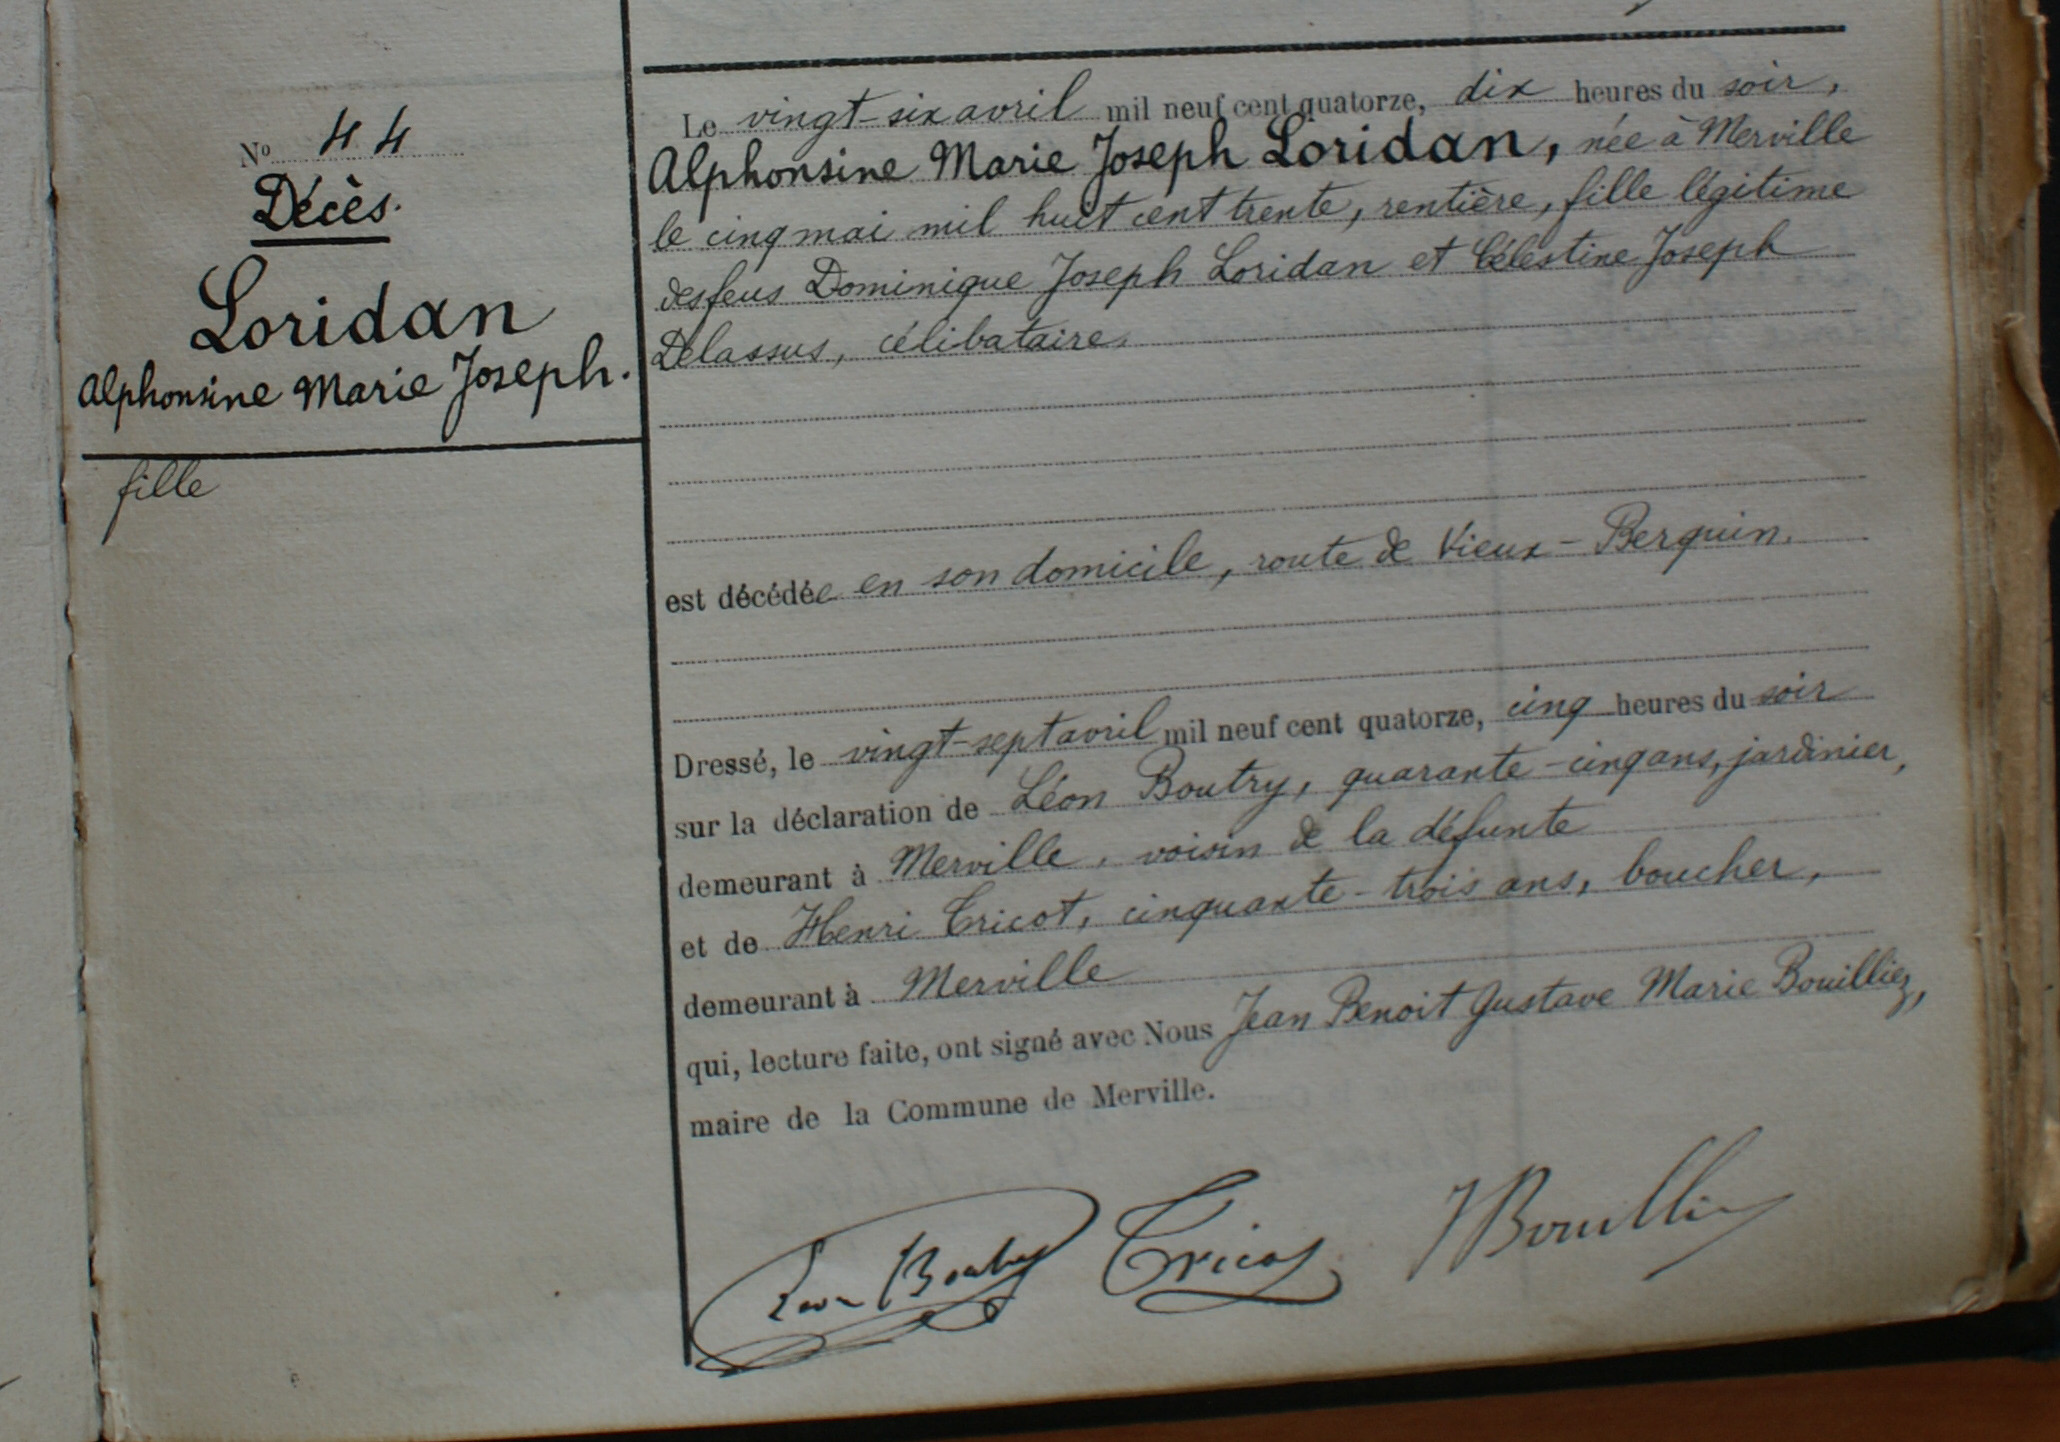 N° 44
Décès.
Loridan
Alphonsine Marie Joseph.
fille
Le vingt-six avril mil neuf cent quatorze, dix heures du soir,
Alphonsine Marie Joseph Loridan, née à Merville
le cinq mai mil huit cent trente, rentière, fille légitime
des feus Dominique Joseph Loridan et Célestine Joseph
Delassus, célibataire.
est décédée en son domicile, route de Vieux-Berquin.
Dressé, le vingt-sept avril mil neuf cent quatorze, cinq heures du soir
sur la déclaration de Léon Boutry, quarante-cinq ans, jardinier,
demeurant à Merville, voisin de la défunte
et de Henri Tricot, cinquante-trois ans, boucher,
demeurant à Merville
qui, lecture faite, ont signé avec Nous Jean Benoit Gustave Marie Bouilliez,
maire de la Commune de Merville.
Léon Boutry Tricot JBouilliez